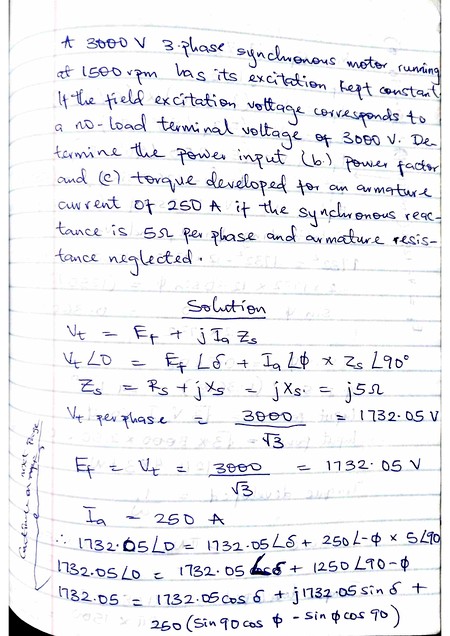 A 3000 V 3-phase synchronous motor running
at 1500 rpm has its excitation kept constant
If the field excitation voltage corresponds to
a no-load terminal voltage of 3000 V. De-
termine the power input (b) power factor
and (c) torque developed for an armature
current of 250 A if the synchronous reac-
tance is 5Ω per phase and armature resis-
tance neglected.
Solution
Vt = Ef + j Ia Zs
Vt∠0 = Ef ∠δ + Ia ∠ϕ × Zs ∠90°
Zs = Rs + jXs = jXs = j5Ω
Vt per phase = 3000/√3 = 1732.05 V
Ef = Vt = 3000/√3 = 1732.05 V
Ia = 250 A
∴ 1732.05∠0 = 1732.05∠δ + 250∠-ϕ × 5∠90
1732.05∠0 = 1732.05∠δ + 1250∠90-ϕ
1732.05 = 1732.05 cos δ + j1732.05 sin δ +
250 (Sin 90 cos ϕ - sin ϕ cos 90)